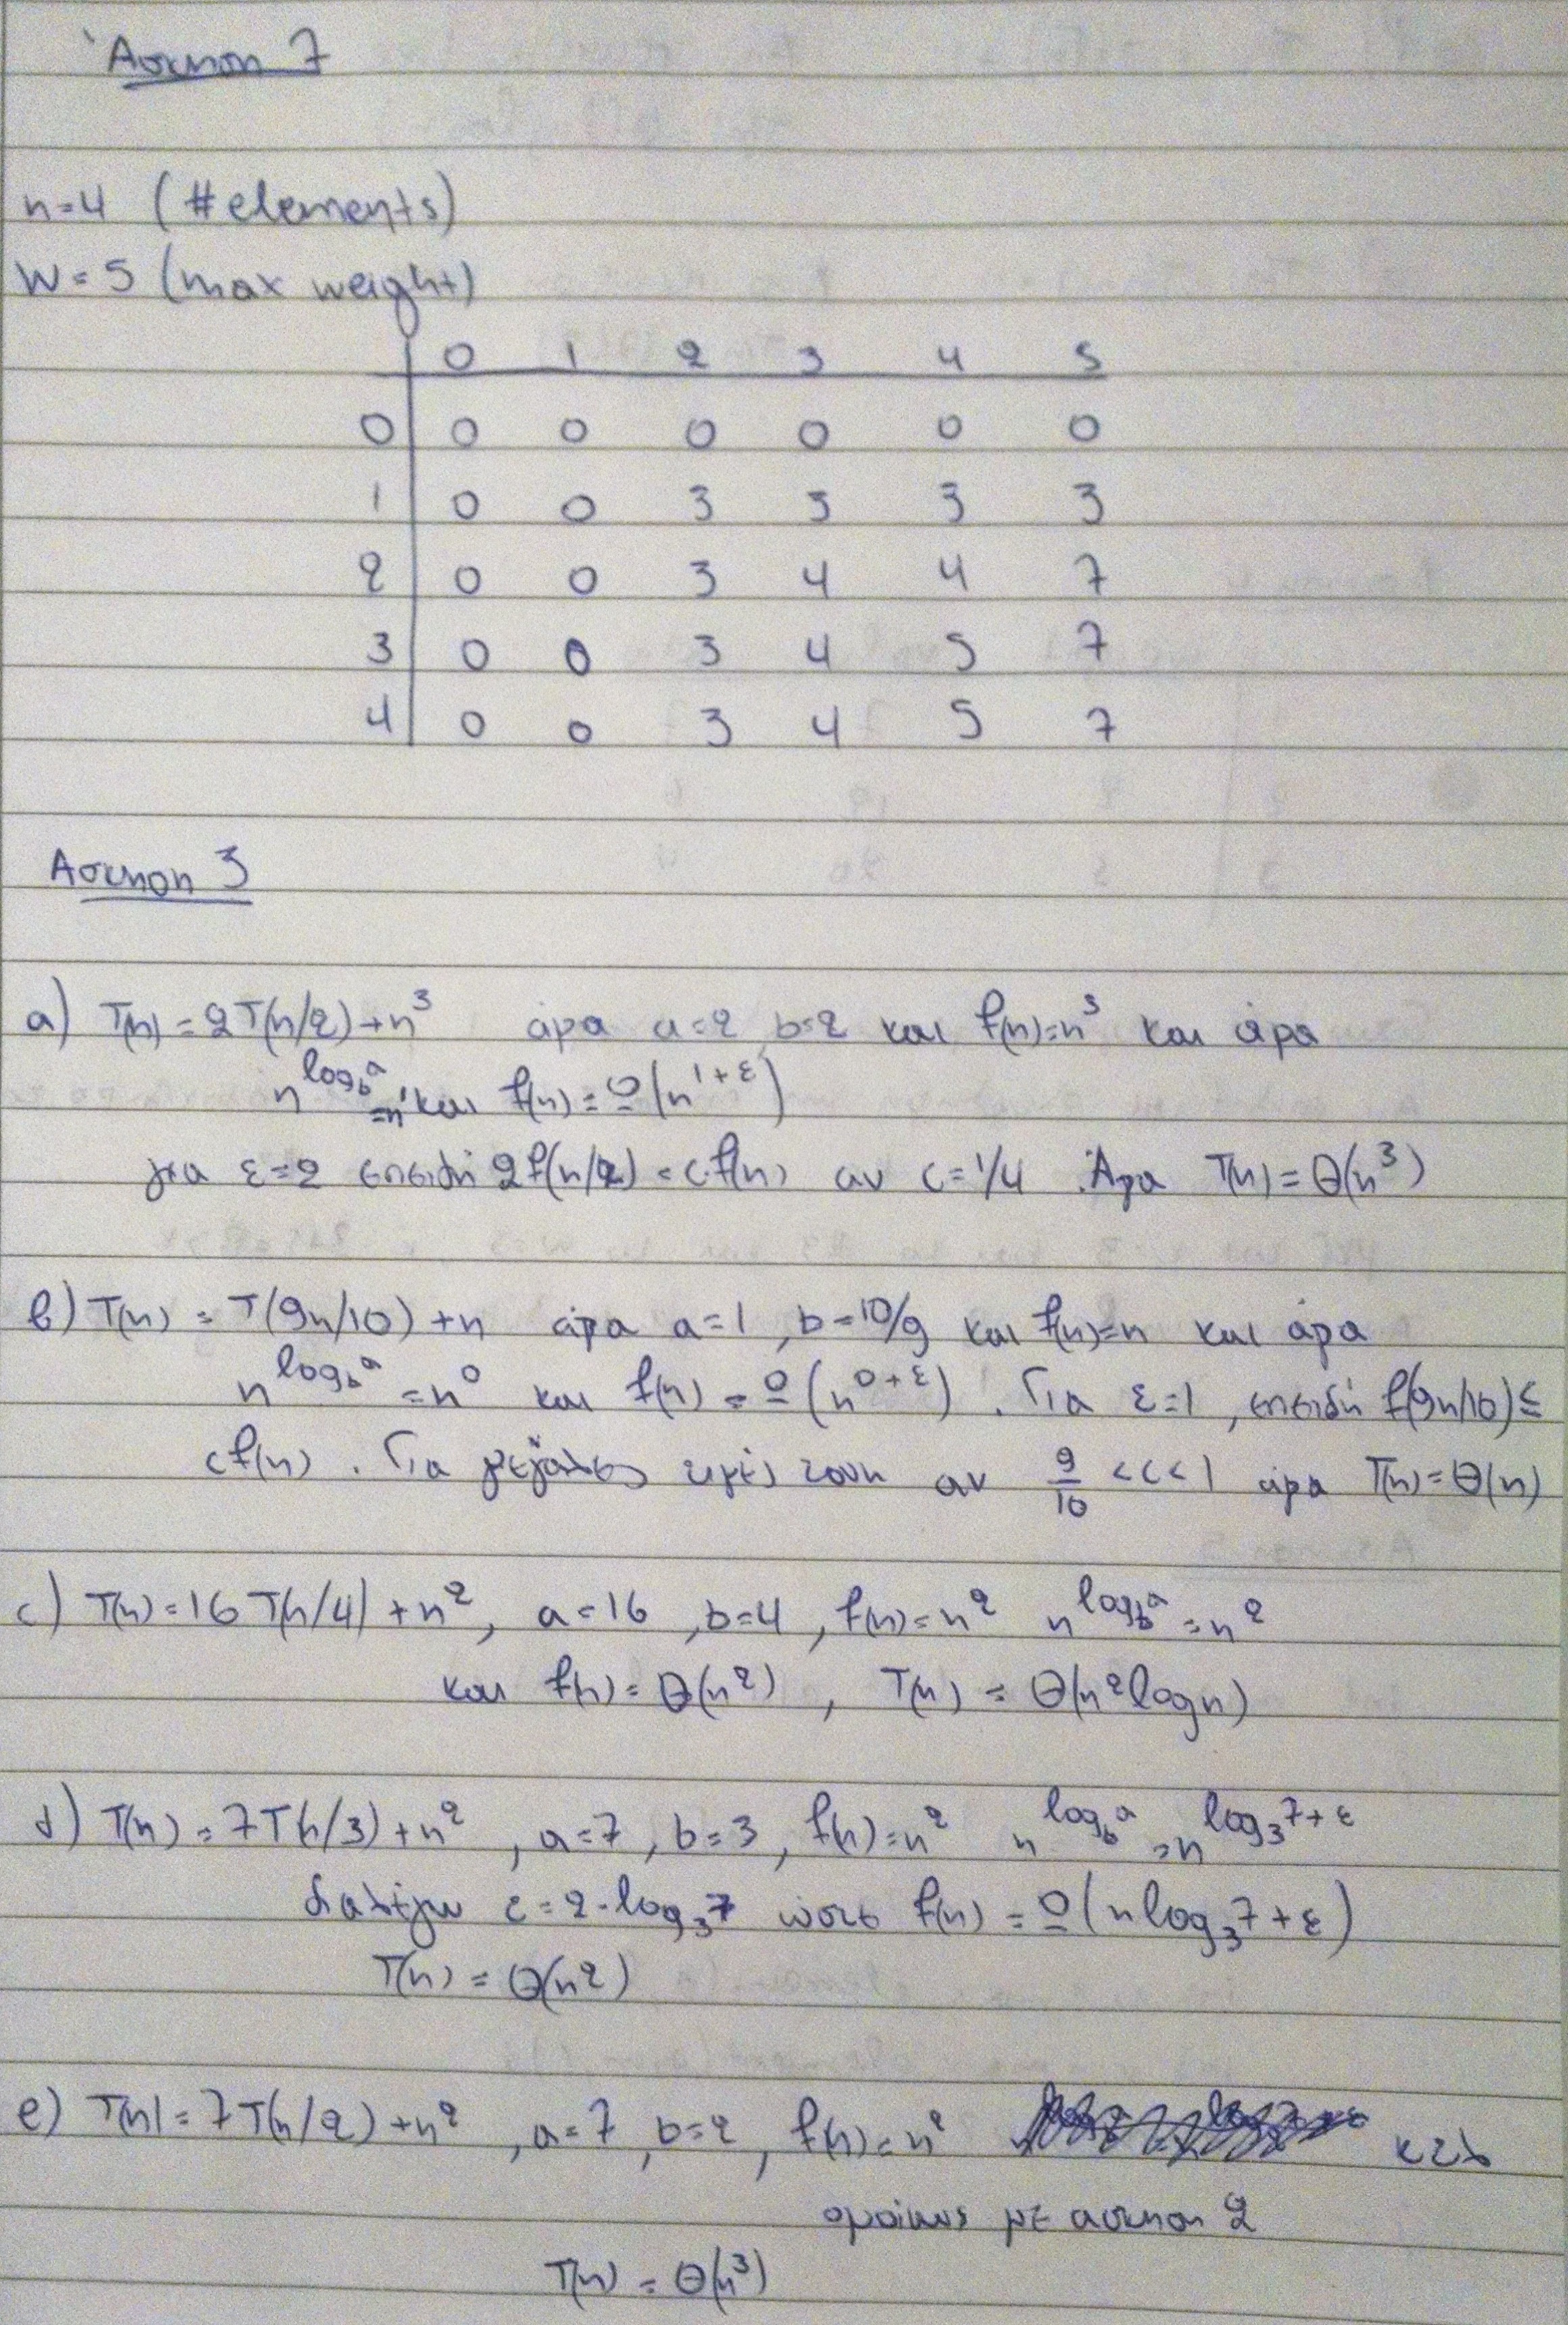 Άσκηση 7
n=4 (#elements)
W=5 (max weight)
0 1 2 3 4 5
0 0 0 0 0 0 0
1 0 0 3 3 3 3
2 0 0 3 4 4 7
3 0 0 3 4 5 7
4 0 0 3 4 5 7
Άσκηση 3
a) T(n)=2T(n/2)+n³ άρα a=2 b=2 και f(n)=n³ και άρα
n^log_b^a =n¹ και f(n)=Ω(n^1+ε)
για ε=2 επειδή 2f(n/2)=c f(n) αν c=1/4 . Άρα T(n)=Θ(n³)
b) T(n)=T(9n/10)+n άρα a=1, b=10/9 και f(n)=n και άρα
n^log_b^a =n⁰ και f(n)=Ω(n^0+ε). Για ε=1, επειδή f(9n/10)≤
cf(n). Για μεγάλες τιμές του n αν 9/10 <c<1 άρα T(n)=Θ(n)
c) T(n)=16T(n/4)+n², a=16, b=4, f(n)=n² n^log_b^a =n²
και f(n)=Θ(n²), T(n)=Θ(n²logn)
d) T(n)=7T(n/3)+n², a=7, b=3, f(n)=n² n^log_b^a =n^log₃7+ε
διαλέγω ε=2-log₃7 ώστε f(n)=Ω(nlog₃7+ε)
T(n)=Θ(n²)
e) T(n)=7T(n/2)+n², a=7, b=2, f(n)=n² κτλ
ομοίως με ασκηση 2
T(n)=Θ(n³)